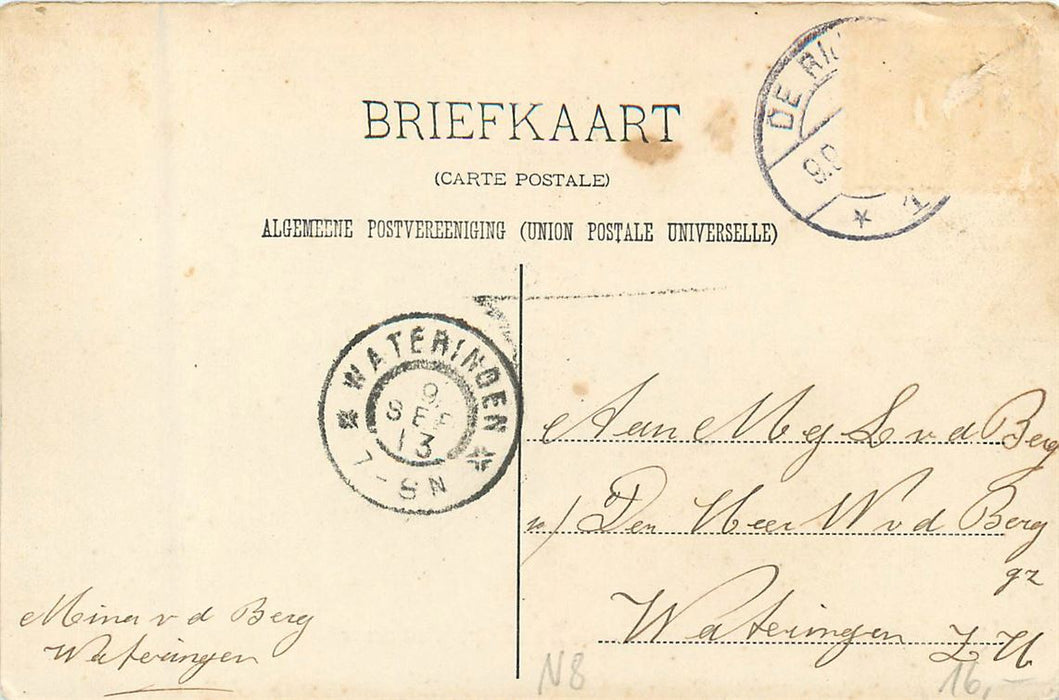 BRIEFKAART
(CARTE POSTALE)
ALGEMEENE POSTVEREENIGING (UNION POSTALE UNIVERSELLE)
DE
WATERINGEN
9
SEP
13
7-8N
Aan Mej L v d Berg
p/ Den Heer W v d Berg
gz
Wateringen Z H
Mina v d Berg
Wateringen
N8
16,-